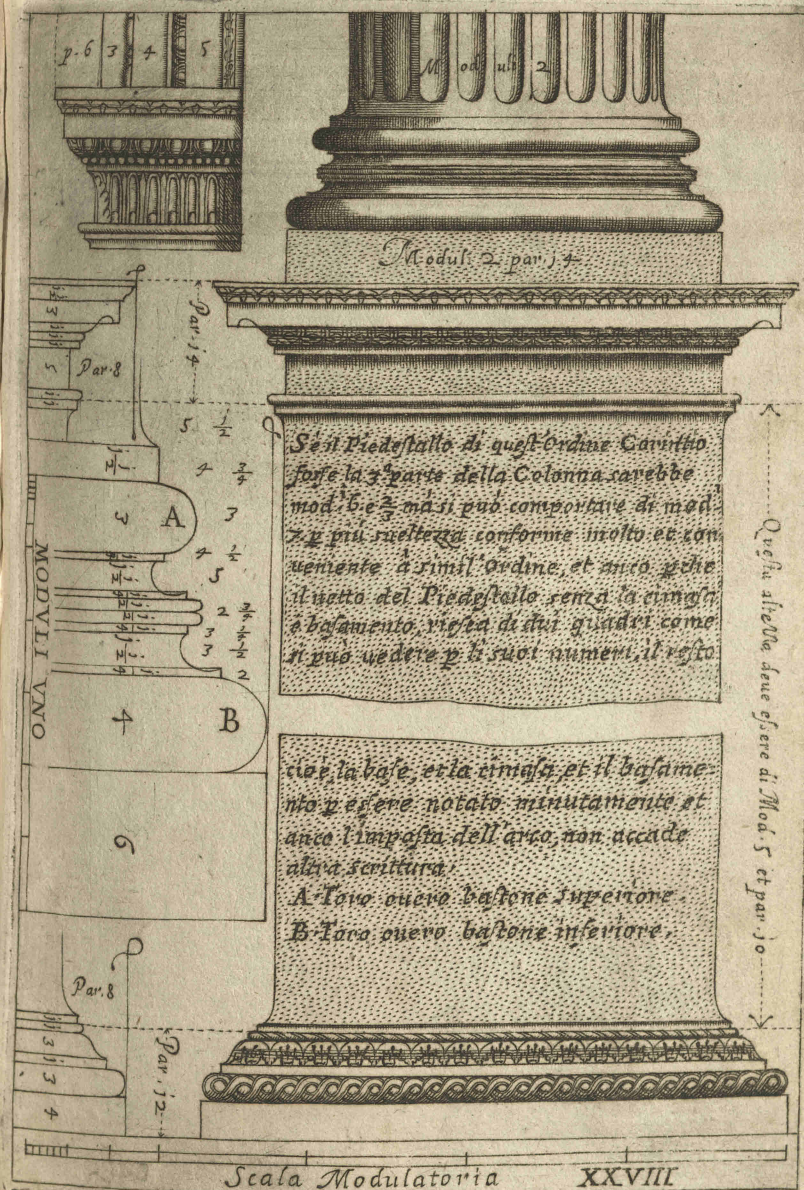 p. 6 3 4 5
Moduli 2
Modul. 2 par. j4
3
5
Par. 8
Par. j4
5 1/2
4 3/4
3
4 1/2
5
2 3/4
3 1/2
3 1/2
2
j 1/2
3
A
MODVLI VNO
4
B
6
Se il Piedestallo di quest'Ordine Carinthio
fosse la 3ª parte della Colonna sarebbe
mod.ⁱ 6. e 2/3 mà si puó comportare di mod.ⁱ
7. p piú sueltezza conforme molto et con
ueniente à simil'Ordine, et anco pche
il netto del Piedestallo senza la cimasa
e basamento, riesca di dui quadri come
si può uedere p li suoi numeri, il resto
cioè, la base, et la cimasa, et il basame-
nto p essere notato minutamente et
anco l'imposta dell'arco, non accade
altra scrittura.
A. Toro ouero bastone superiore.
B. Toro ouero bastone inferiore.
Questa altezza deue essere di Mod. 5 et par. jo
Par. 8
3
j
3
4
Par. j2
Scala Modulatoria XXVIII